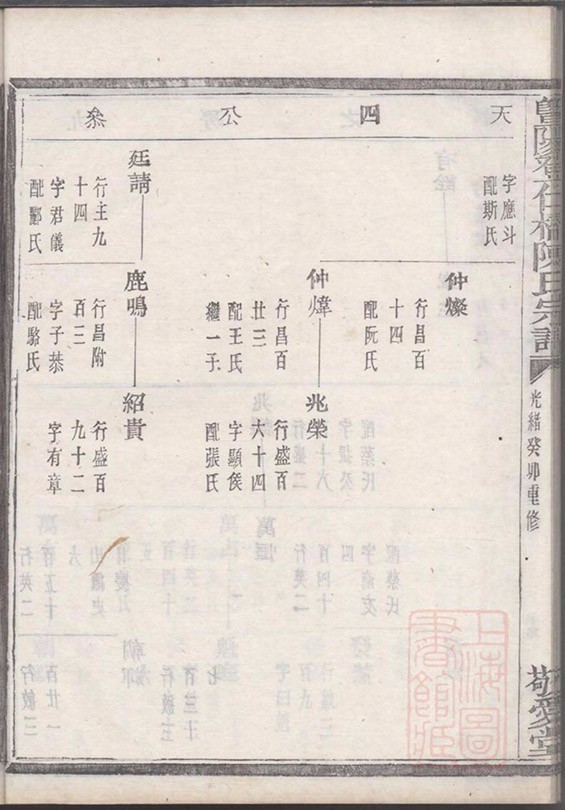 天四公叅
字應斗
配斯氏
仲燦
行昌百
十四
配阮氏
仲煒
行昌百
廿三
配王氏
繼一子
兆榮
行盛百
六十四
字顯侯
配張氏
廷請
行主九
十四
字君儀
配酈氏
鹿鳴
行昌附
百三
字子恭
配駱氏
紹貴
行盛百
九十二
字有章
陳氏宗譜
光緒癸卯重修
敬愛堂
上海圖書館藏